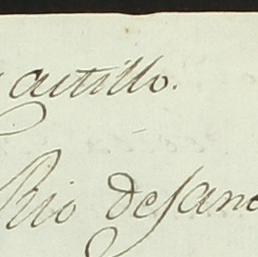 artillo.
Rio desan